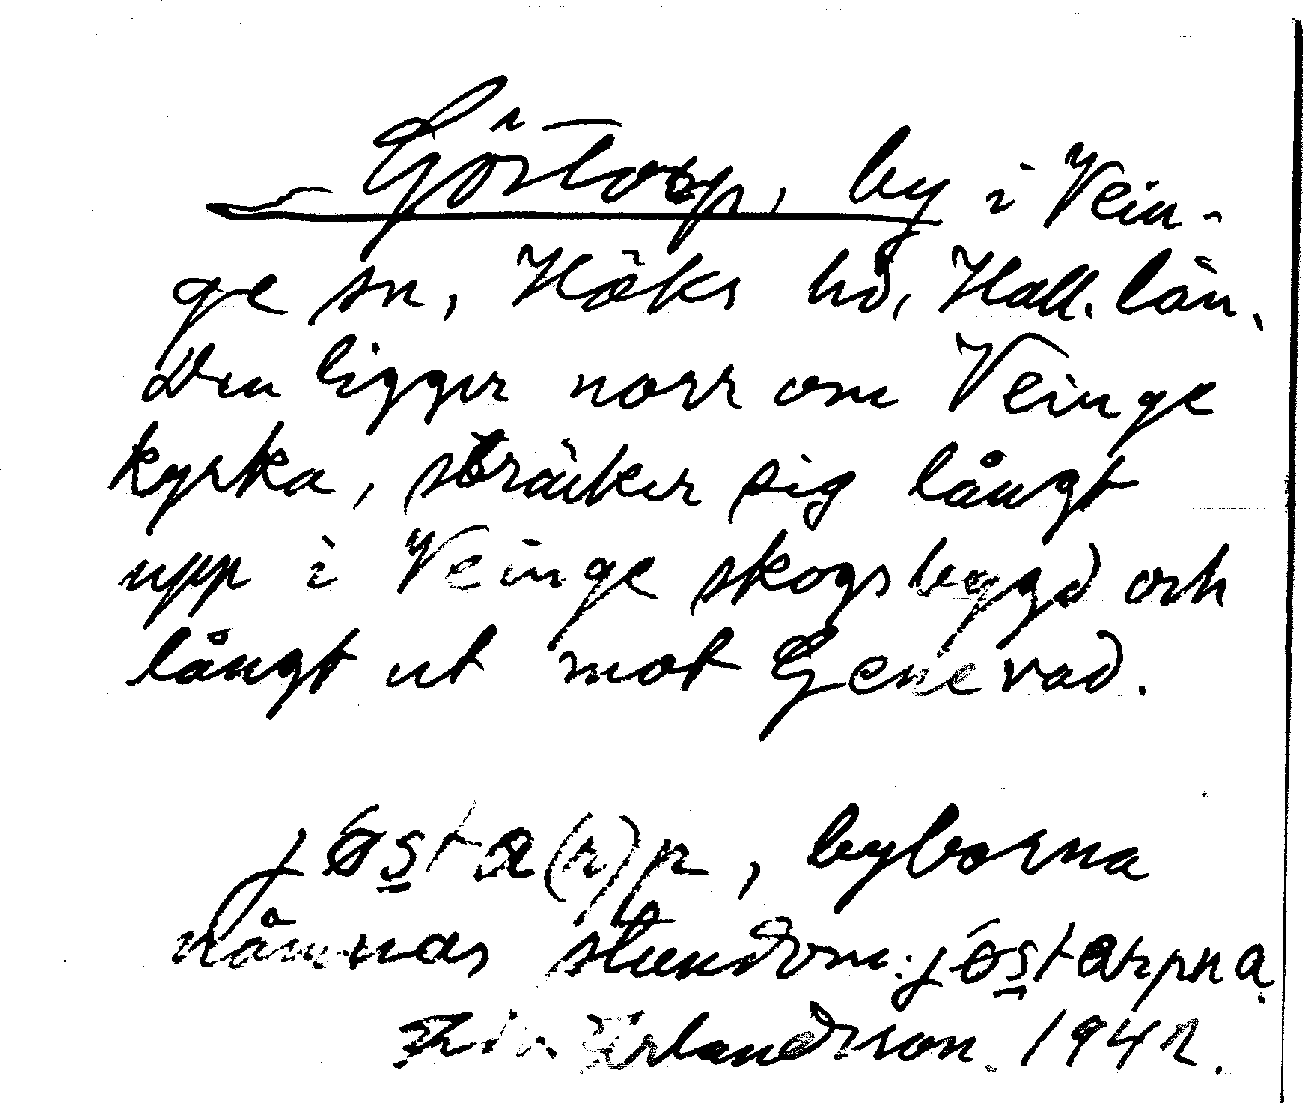 Göstorp, by i Vein-
ge sn, Höks hd, Hall. län.
Den ligger norr om Veinge
kyrka, sträcker sig långt
upp i Veinge skogsbygd och
långt ut mot Genevad.
jösta(r)p, byborna
nämnas stundom: jöstarpna.
Erlandsson. 1942.